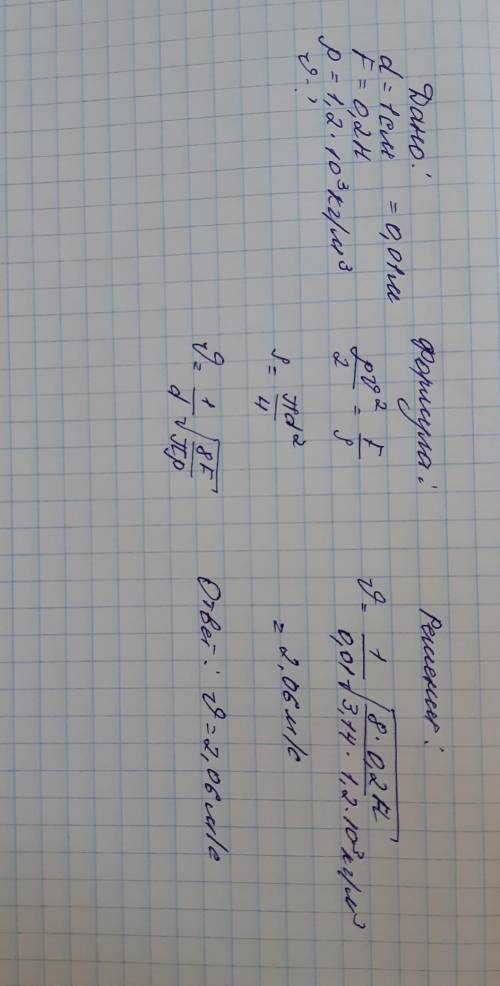 Дано:
d = 1см = 0,01м
F = 0,2Н
ρ = 1,2·10³кг/м³
υ - ?
Формула:
ρυ²/2 = F/S
S = πd²/4
υ = 1/d √(8F/πρ)
Решение:
υ = 1/0,01 √(8·0,2Н/3,14·1,2·10³кг/м³)
= 2,06м/с
Ответ: υ = 2,06м/с